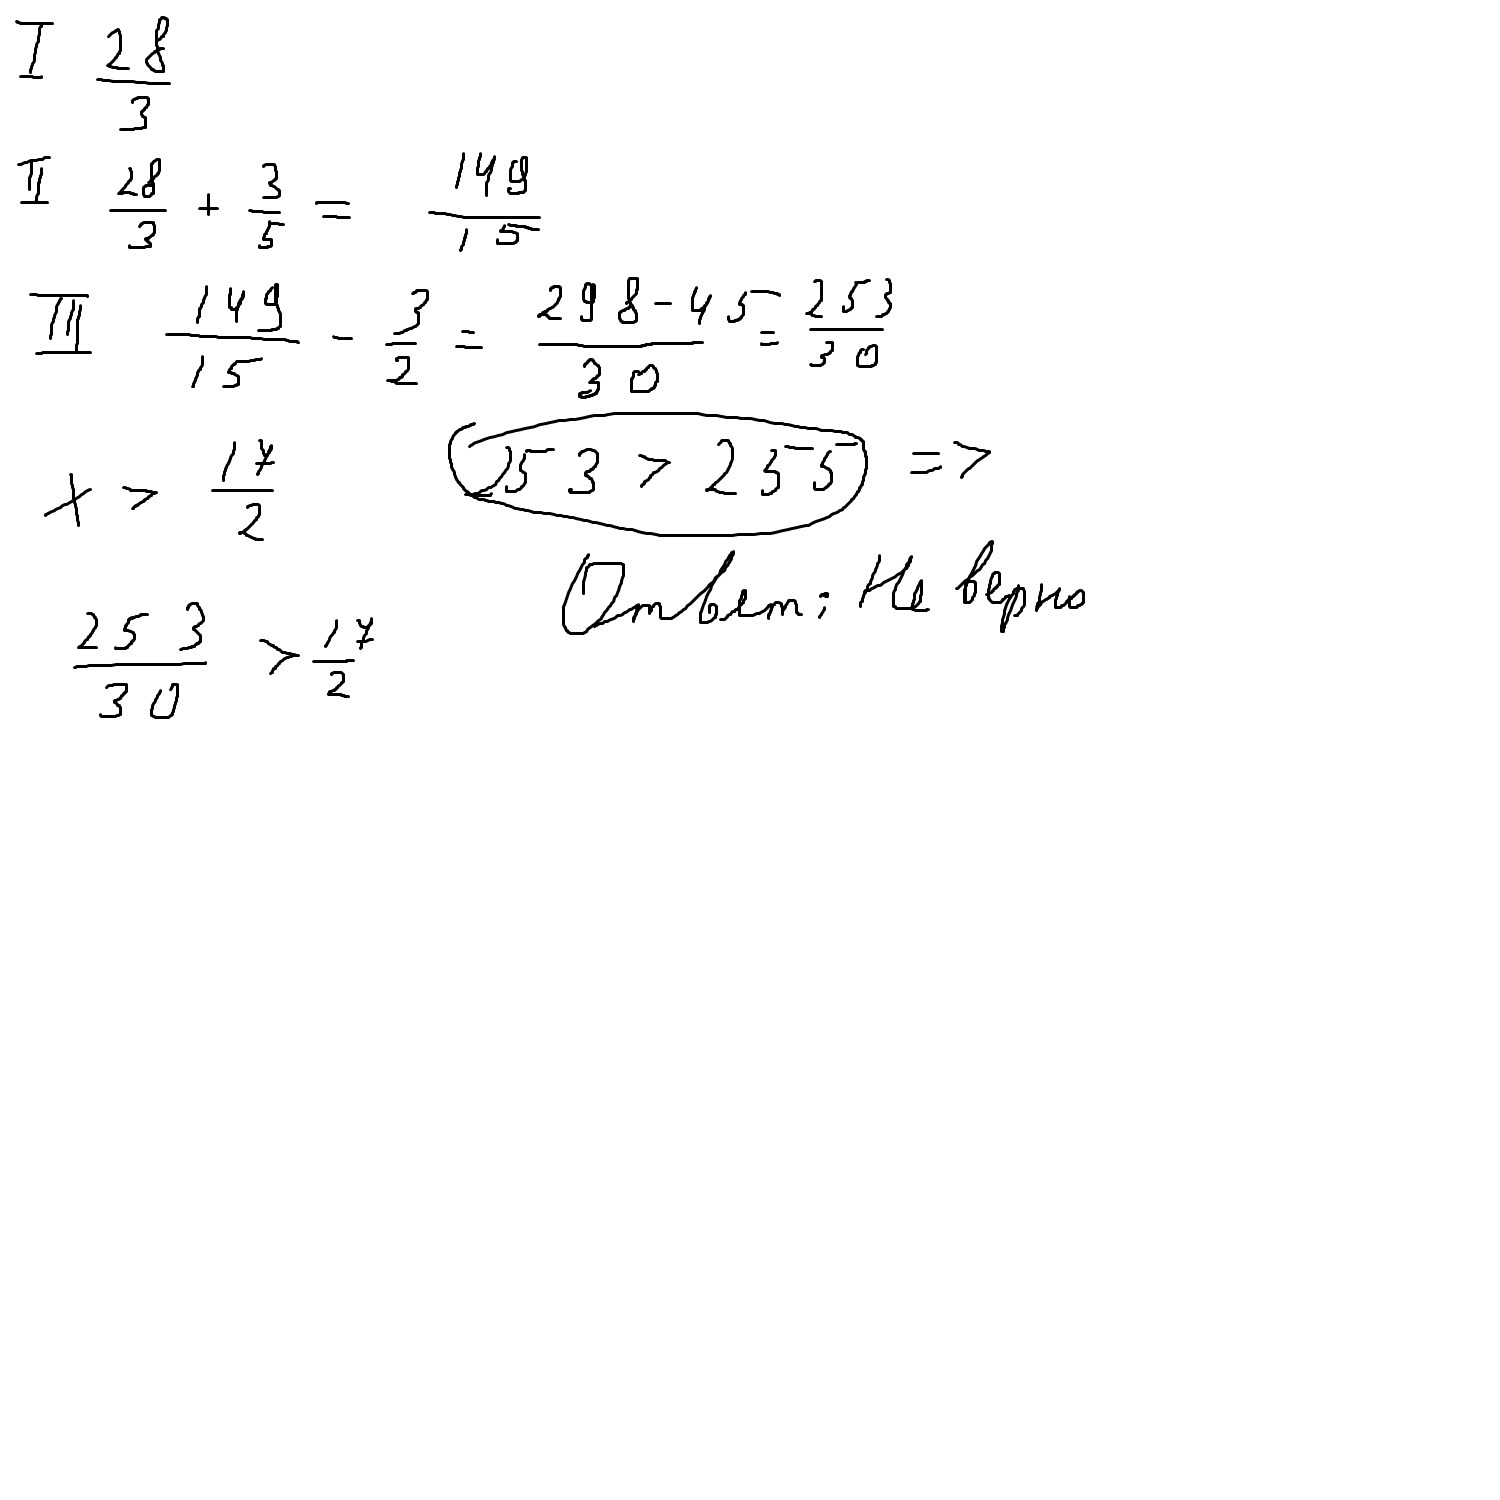 I 28/3
II 28/3 + 3/5 = 149/15
III 149/15 - 3/2 = 298-45/30 = 253/30
x > 17/2
253 > 255 =>
Ответ: Не верно
253/30 > 17/2